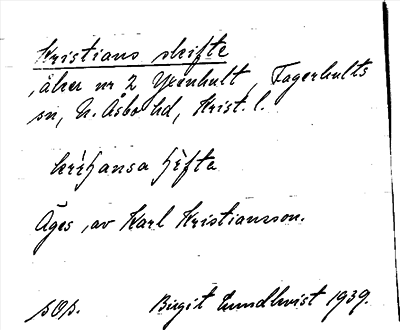 Kristians skifte
, åker nr 2 Yxenhult, Fagerhults
sn, N. Åsbo hd, Krist. l.
Äges , av Karl Kristiansson.
sOs. Birgit Lundkvist 1939.